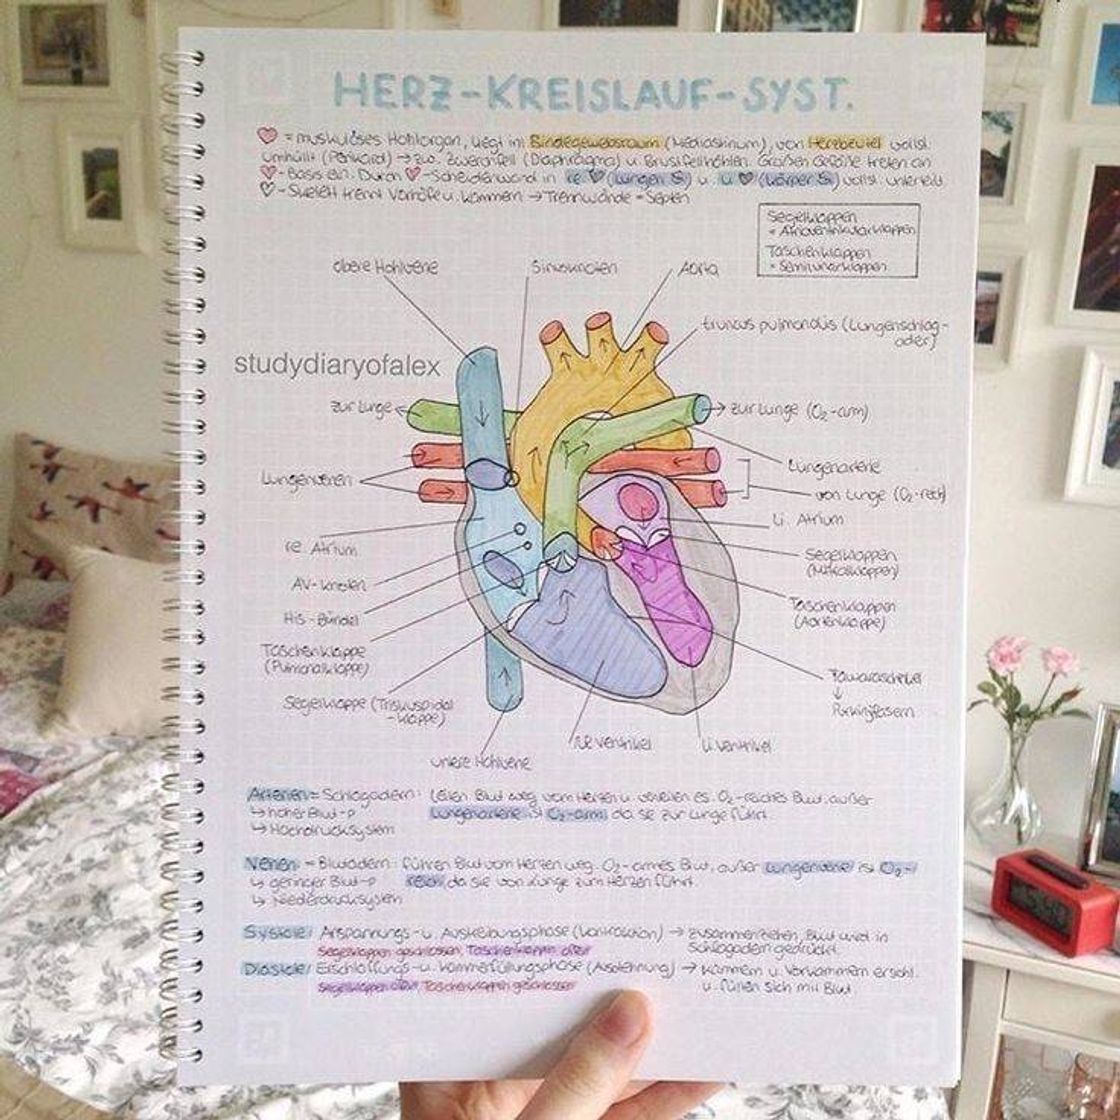 HERZ-KREISLAUF-SYST.
♡ = muskulöses Hohlorgan, liegt im Bindegewebsraum (Mediastinum), von Herzbeutel vollst.
umhüllt (Perikard) → zw. Zwerchfell (Diaphragma) u. Brustfellhöhlen. Großen Gefäße treten an
♡-Basis ein. Durch ♡-Scheidewand in re ♡ (Lungen) u. li ♡ (Körper) vollst. unterteilt.
♡-Skelett trennt Vorhöfe u. Kammern → Trennwände = Septen
Segelklappen
= Atrioventrikularklappen
Taschenklappen
= Semilunarklappen
obere Hohlvene
Sinusknoten
Aorta
truncus pulmonalis (Lungenschlag-
ader)
studydiaryofalex
zur Lunge
zur Lunge (O₂-arm)
Lungenvenen
Lungenarterie
von Lunge (O₂-reich)
li. Atrium
re. Atrium
Segelklappen
(Mitralklappen)
AV-Knoten
Taschenklappen
(Aortenklappe)
His-Bündel
Taschenklappe
(Pulmonalklappe)
Tawaraschenkel
↓
Purkinjefasern
Segelklappe (Trikuspidal
-klappe)
re ventrikel
li. ventrikel
untere Hohlvene
Arterien = Schlagadern: leiten Blut weg vom Herzen u. verteilen es. O₂-reiches Blut, außer
↳ hoher Blut-p Lungenarterie ist O₂-arm, da sie zur Lunge führt.
↳ Hochdrucksystem
Venen = Blutadern: führen Blut vom Herzen weg. O₂-armes Blut, außer Lungenvene ist O₂-
↳ geringer Blut-p reich, da sie von Lunge zum Herzen führt.
↳ Niederdrucksystem
Systole: Anspannungs- u. Austreibungsphase (Kontraktion) → zusammenziehen, Blut wird in
Segelklappen geschlossen, Taschenklappen offen Schlagadern gedrückt.
Diastole: Erschlaffungs- u. Kammerfüllungsphase (Ausdehnung) → Kammern u. Vorkammern erschl.
Segelklappen offen, Taschenklappen geschlossen u. füllen sich mit Blut.